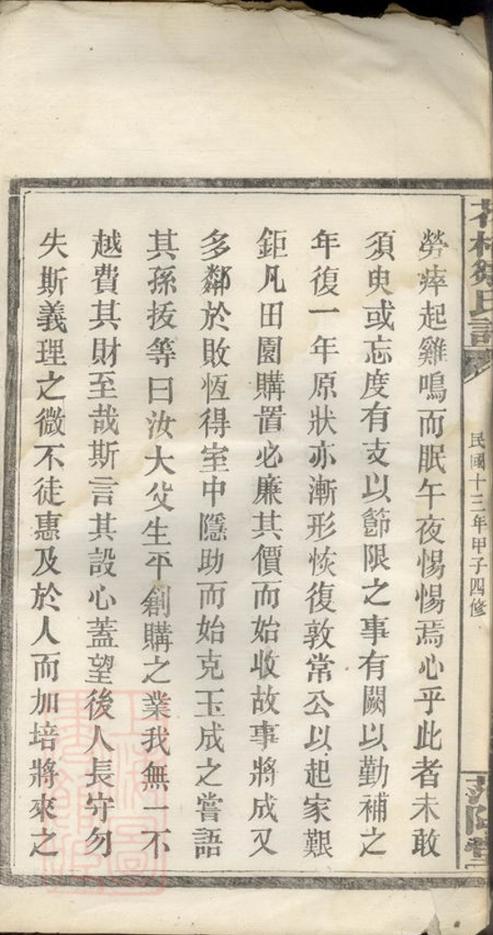 民國十三年甲子四修
勞瘁起雞鳴而眠午夜惕惕焉心乎此者未敢
須臾或忘度有支以節限之事有闕以勤補之
年復一年原狀亦漸形恢復敦常公以起家艱
鉅凡田園購置必廉其價而始收故事將成又
多鄰於敗恆得室中隱助而始克玉成之嘗語
其孫拔等曰汝大父生平創購之業我無一不
越費其財至哉斯言其設心蓋望後人長守勿
失斯義理之微不徒惠及於人而加培將來之